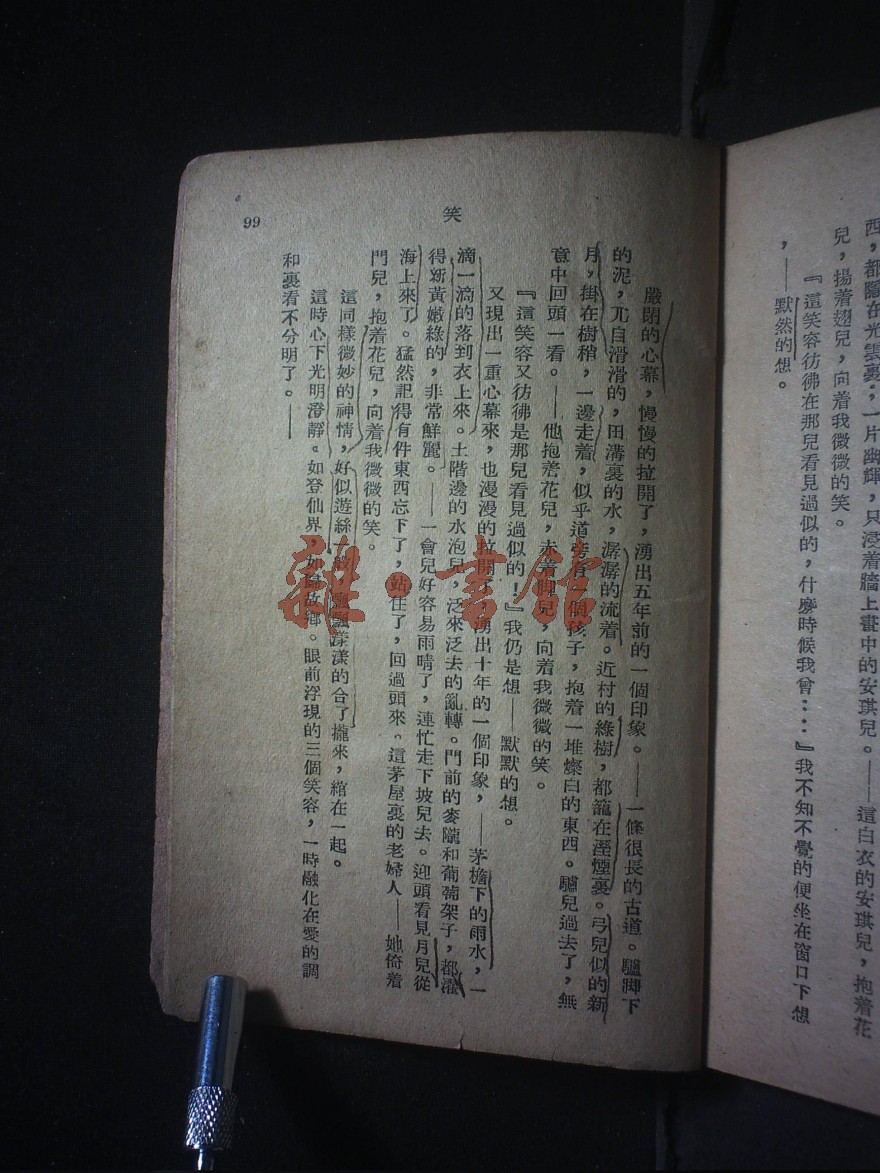 西，都隱在光雲裏；一片幽輝，只浸着牆上畫中的安琪兒。——這白衣的安琪兒，抱着花
兒，揚着翅兒，向着我微微的笑。
『這笑容彷彿在那兒看見過似的，什麼時候我曾……』我不知不覺的便坐在窗口下想
，——默然的想。
笑
99
嚴閉的心幕，慢慢的拉開了，湧出五年前的一個印象。——一條很長的古道。驢脚下
的泥，兀自滑滑的，田溝裏的水，潺潺的流着。近村的綠樹，都籠在溼煙裏。弓兒似的新
月，掛在樹梢，一邊走着，似乎道旁有一個孩子，抱着一堆燦白的東西。驢兒過去了，無
意中回頭一看。——他抱着花兒，赤着脚兒，向着我微微的笑。
『這笑容又彷彿是那兒看見過似的！』我仍是想——默默的想。
又現出一重心幕來，也漫漫的拉開了，湧出十年的一個印象，——茅檐下的雨水，一
滴一滴的落到衣上來。土階邊的水泡兒，泛來泛去的亂轉。門前的麥隴和葡萄架子，都濯
得新黃嫩綠的，非常鮮麗。——一會兒好容易雨晴了，連忙走下坡兒去。迎頭看見月兒從
海上來了。猛然記得有件東西忘下了，站住了，回過頭來。這茅屋裏的老婦人——她倚着
門兒，抱着花兒，向着我微微的笑。
這同樣微妙的神情，好似遊絲一般，飄飄漾漾的合了攏來，綰在一起。
這時心下光明澄靜。如登仙界，如歸故鄉。眼前浮現的三個笑容，一時融化在愛的調
和裏看不分明了。——
雜·書館